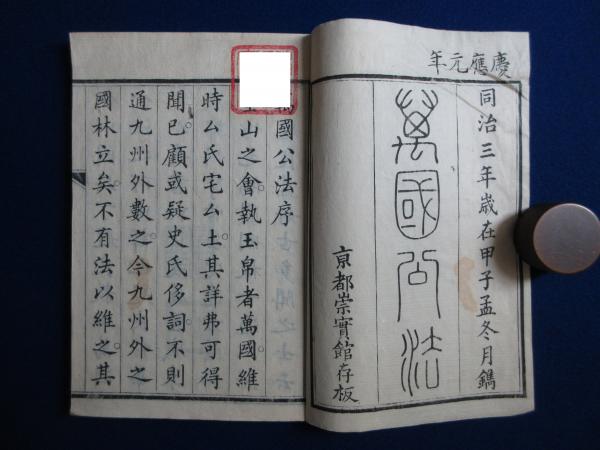 慶應元年
同治三年歳在甲子孟冬月鐫
萬國公法
京都崇實館存板
國公法序
山之會執玉帛者萬國維
時厶氏宅厶土其詳弗可得
聞已顧或疑史氏侈詞不則
通九州外數之今九州外之
國林立矣不有法以維之其